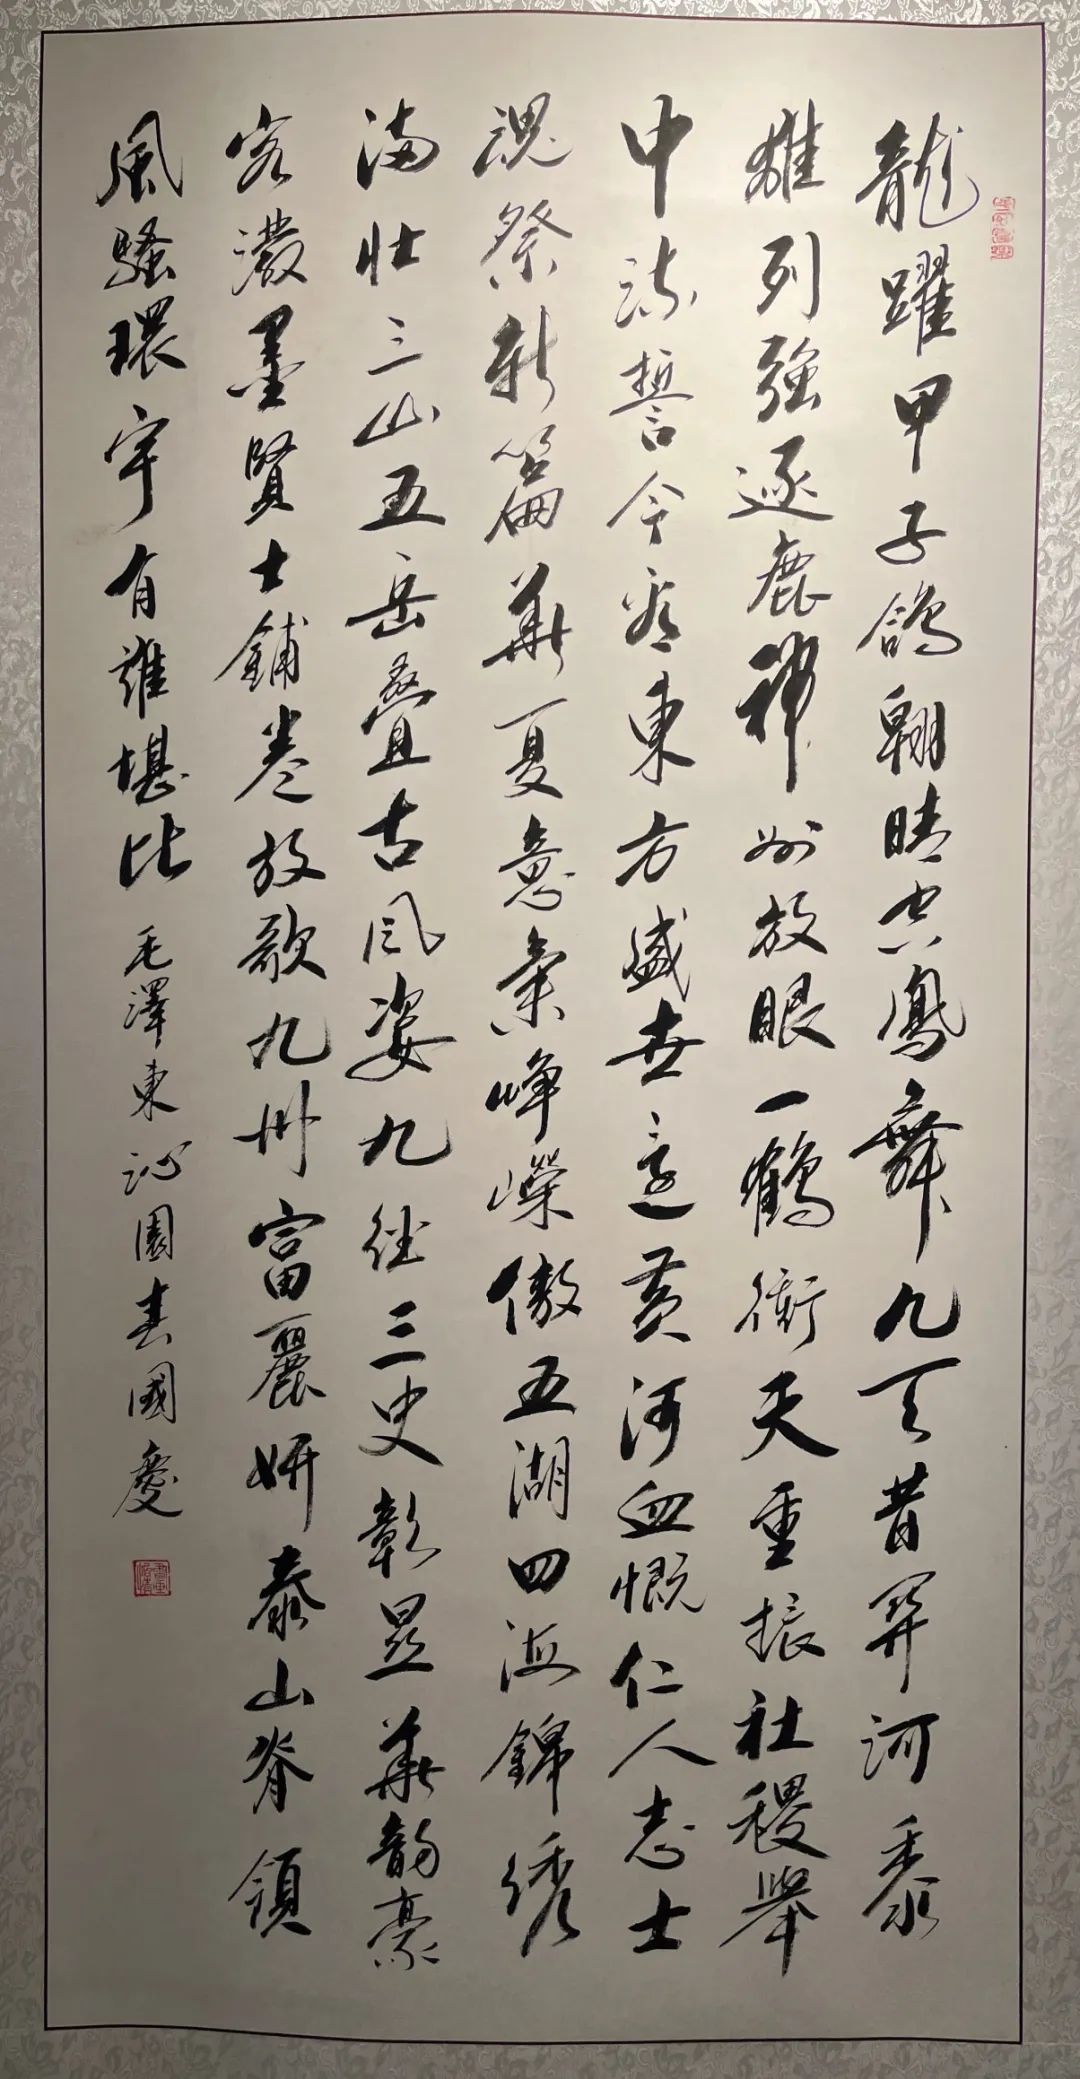 龍躍甲子鴿翱晴空鳳舞九天昔関河黍
離列強逐鹿神州放眼一鶴衝天重振社稷舉
中流誓今看東方盛世還黃河血慨仁人志士
魂祭新篇華夏意氣崢嶸傲五湖四海錦綉
滿壯三山五岳疊古風姿九經三史彰顯華韵豪
客潑墨賢士鋪卷放歌九州富麗妍泰山脊領
風騷環宇有誰堪比 毛澤東沁園春國慶